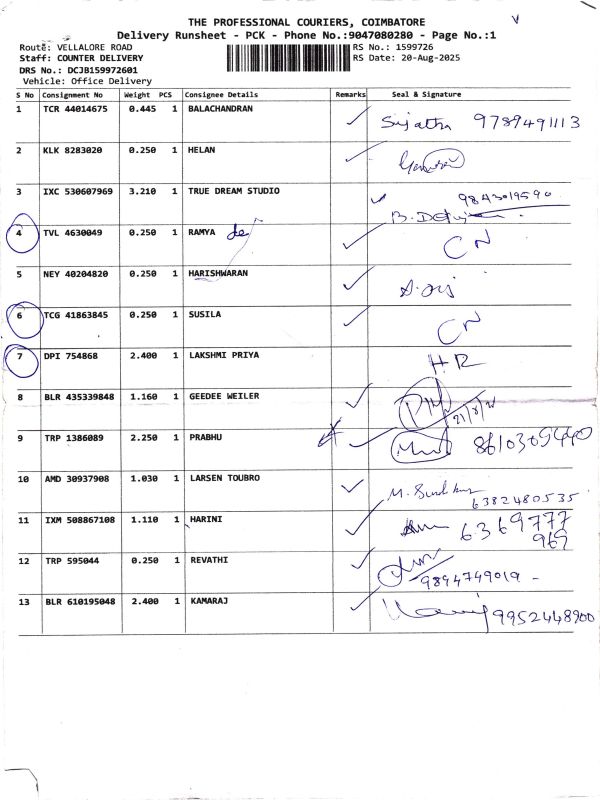 THE PROFESSIONAL COURIERS, COIMBATORE
Delivery Runsheet - PCK - Phone No.:9047080280 - Page No.:1
Route: VELLALORE ROAD
RS No.: 1599726
Staff: COUNTER DELIVERY
RS Date: 20-Aug-2025
DRS No.: DCJB159972601
Vehicle: Office Delivery
S No Consignment No Weight PCS Consignee Details Remarks Seal & Signature
1 TCR 44014675 0.445 1 BALACHANDRAN Sujatha 9789491113
2 KLK 8283020 0.250 1 HELAN
3 IXC 530607969 3.210 1 TRUE DREAM STUDIO
4 TVL 4630049 0.250 1 RAMYA CN
5 NEY 40204820 0.250 1 HARISHWARAN
6 TCG 41863845 0.250 1 SUSILA CN
7 DPI 754868 2.400 1 LAKSHMI PRIYA HR
8 BLR 435339848 1.160 1 GEEDEE WEILER
9 TRP 1386089 2.250 1 PRABHU
10 AMD 30937908 1.030 1 LARSEN TOUBRO
6382480535
11 IXM 508867108 1.110 1 HARINI 6369777
969
12 TRP 595044 0.250 1 REVATHI
9894749019
13 BLR 610195048 2.400 1 KAMARAJ 9952448900